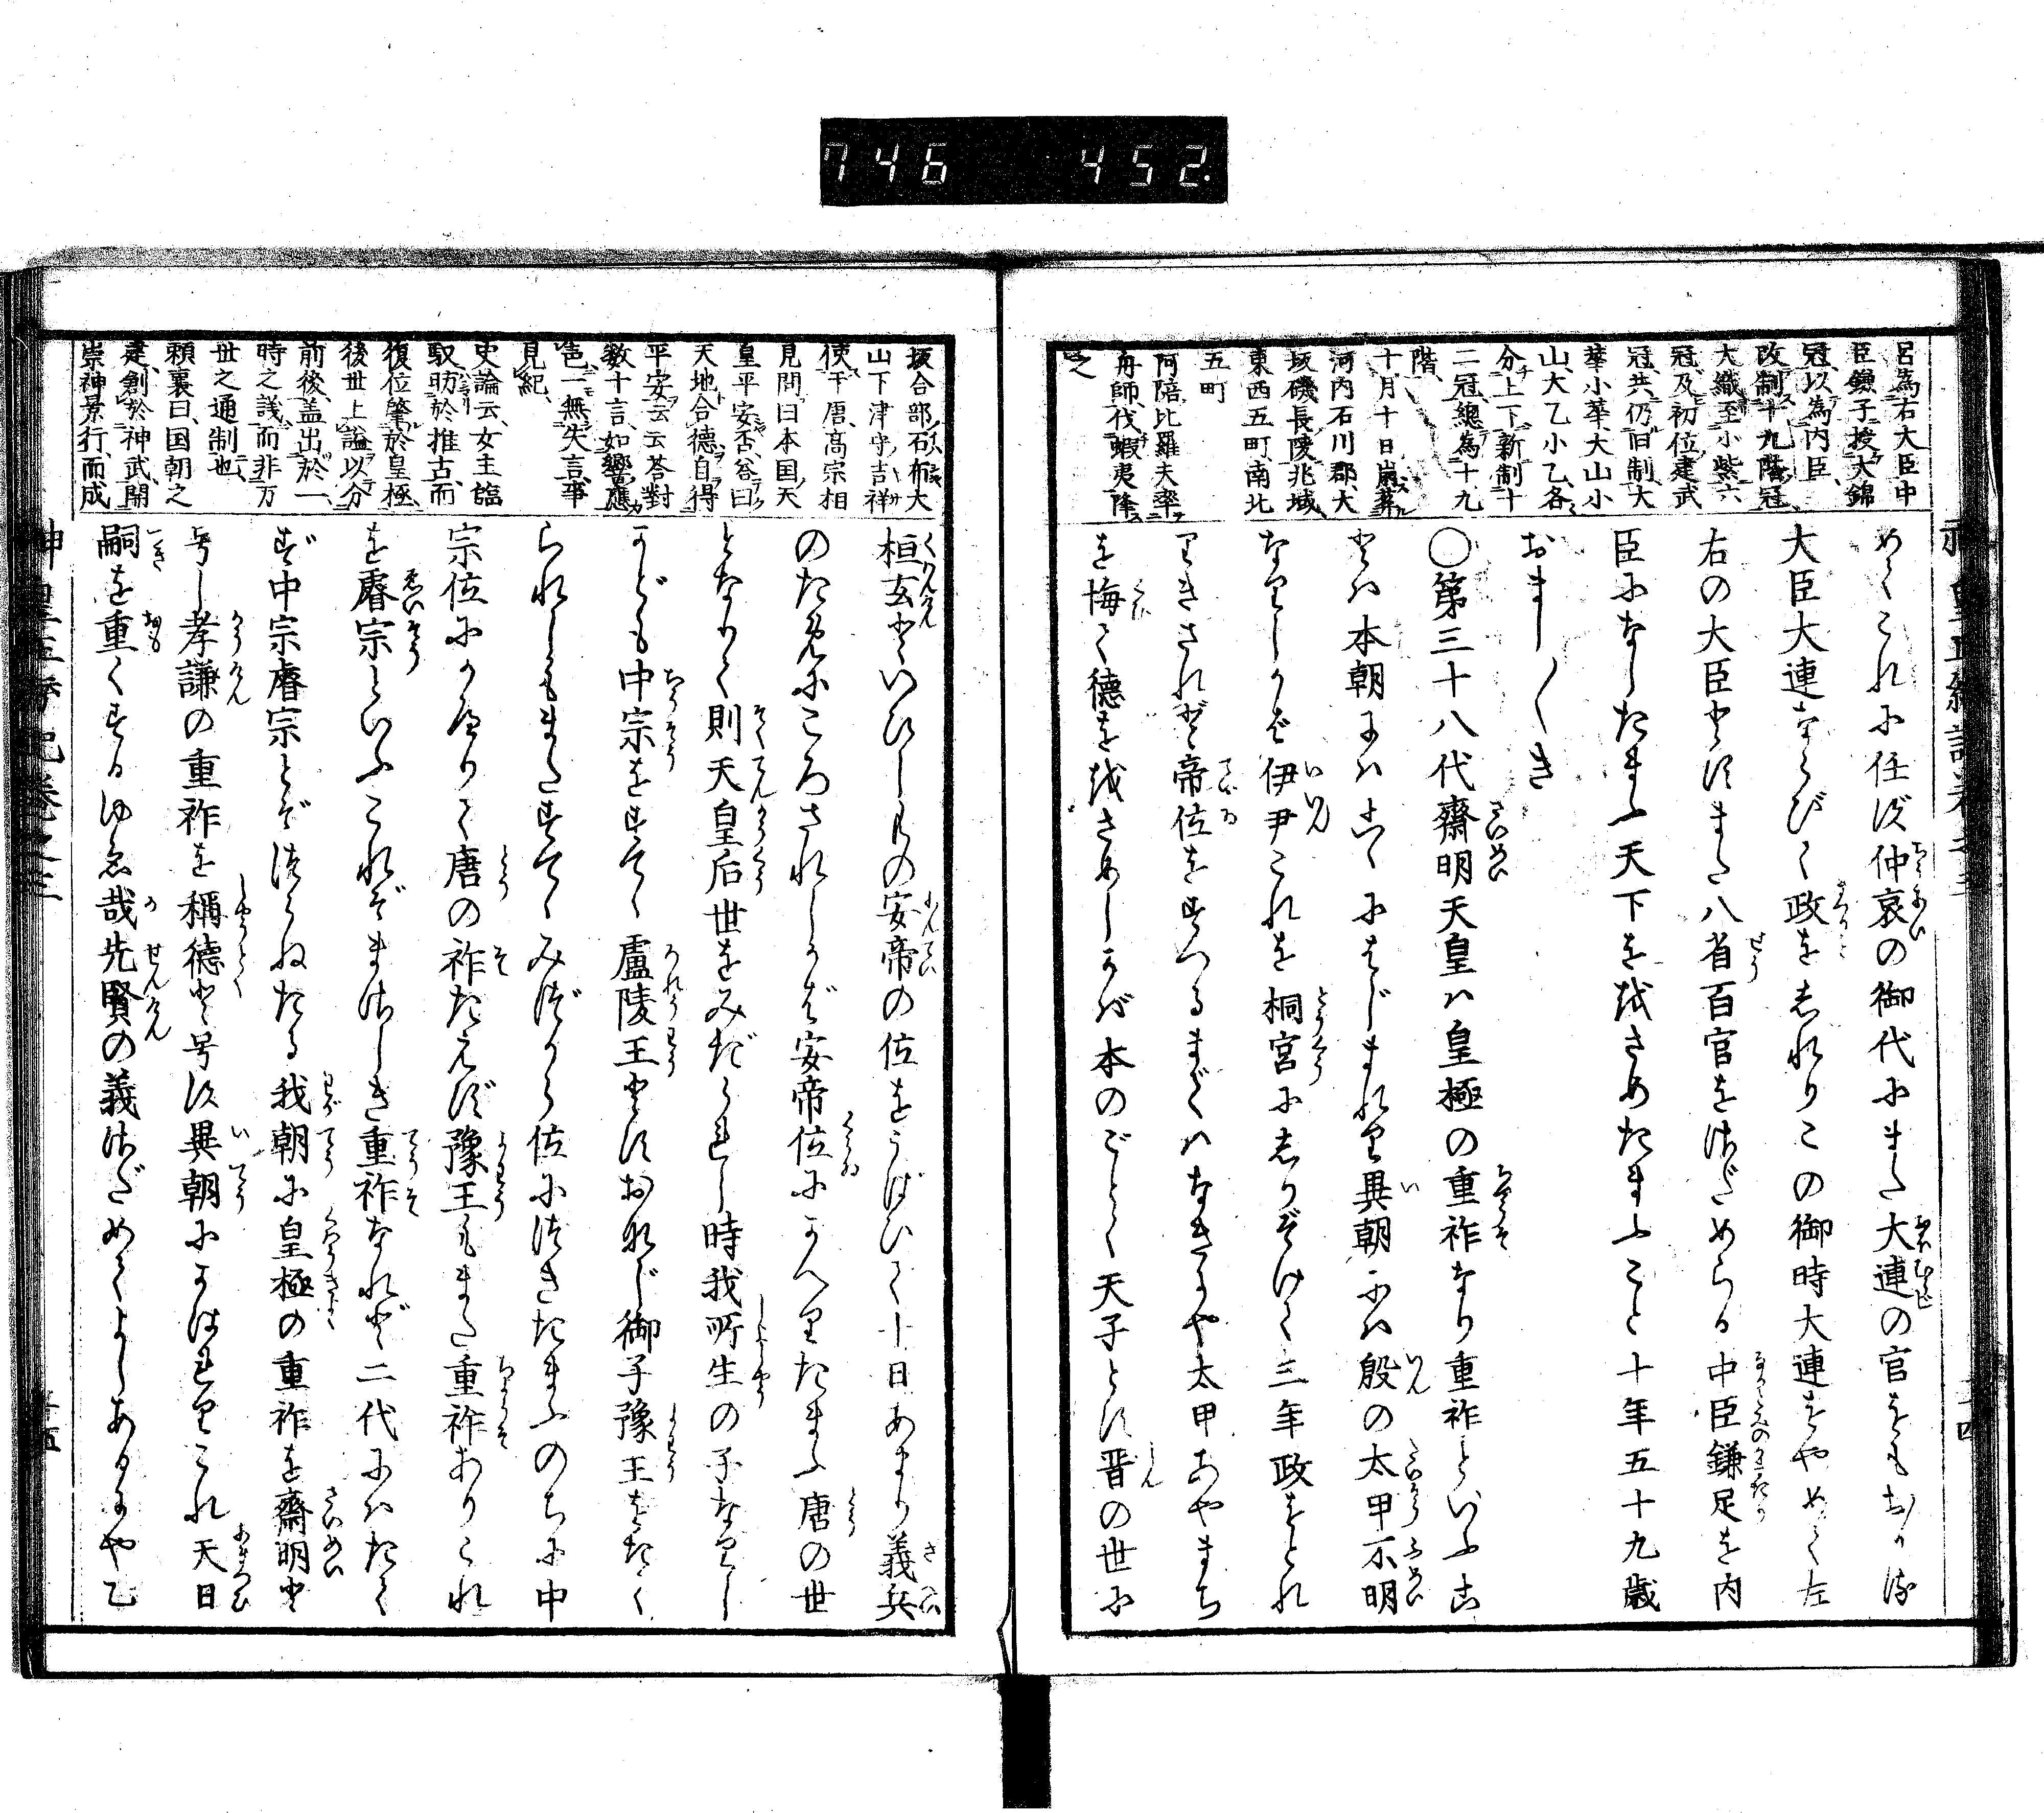 746 452.
呂為右大臣中
臣鎌子授大錦
冠以為内臣
改制十九階冠
大織至小紫六
冠及初位建武
冠共仍旧制大
華小華大山小
山大乙小乙各
分上下新制十
二冠總為十九
階
十月十日崩葬
河内石川郡大
坂磯長陵兆域
東西五町南北
五町
阿陪比羅夫率
舟師伐蝦夷降
之
めてこれに任ず仲哀の御代にまた大連の官をもおかる
大臣大連ならびて政をしれりこの御時大連をやめて左
右の大臣とすまた八省百官をさだめらる中臣鎌足を内
臣になしたまふ天下を治さめたまふこと十年五十九歳
おまし〳〵き
〇第三十八代齋明天皇ハ皇極の重祚なり重祚といふこ
とハ本朝にハこゝにはじまれり異朝にハ殷の太甲不明
なりしかば伊尹これを桐宮にしりぞけて三年政をとれ
りきされど帝位をすつるまでハなきにや太甲あやまち
を悔て徳を治さめしかば本のごとく天子とす晋の世に
坂合部石布大
山下津守吉祥
使于唐高宗相
見問曰本国天
皇平安否答曰
天地合徳自得
平安云云荅對
数十言如響應
色一無失言事
見紀
史論云女主臨
馭昉於推古而
復位肇於皇極
後世上謚以分
前後盖出於一
時之議而非万
世之通制也
頼襄曰国朝之
建創於神武開
崇神景行而成
桓玄といひしもの安帝の位をうばひて十日あまり義兵
のためにころされしかば安帝位にかへりたまふ唐の世
となりて則天皇后世をみだられし時我所生の子なりし
かども中宗をすてゝ盧陵王とすおなじ御子豫王をたて
られしもまたすてゝみづから位につきたまふのちに中
宗位にかへりて唐の祚たえず豫王もまた重祚ありこれ
を睿宗といふこれぞまさしき重祚なれど二代にハたて
ず中宗睿宗とぞつらねたる我朝に皇極の重祚を齋明と
号し孝謙の重祚を稱德と号す異朝にかはれりこれ天日
嗣を重くするゆゑ哉先賢の義さだめてよしあるにや乙